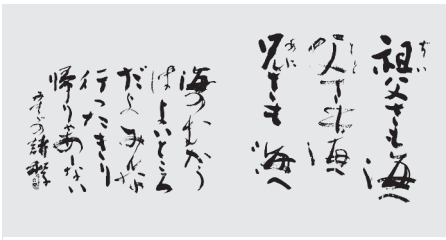 祖父さも海へ
ぢい
父さも海へ
とと
兄さも海へ
あに
海のむかう
はよいところ
だよみんな
行つたきり
帰りやあしない